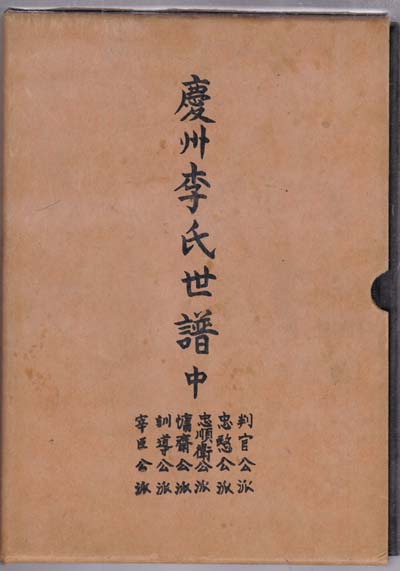 慶州李氏世譜中
判官公派
忠愍公派
忠順衛公派
墉齋公派
訓導公派
宰臣公派